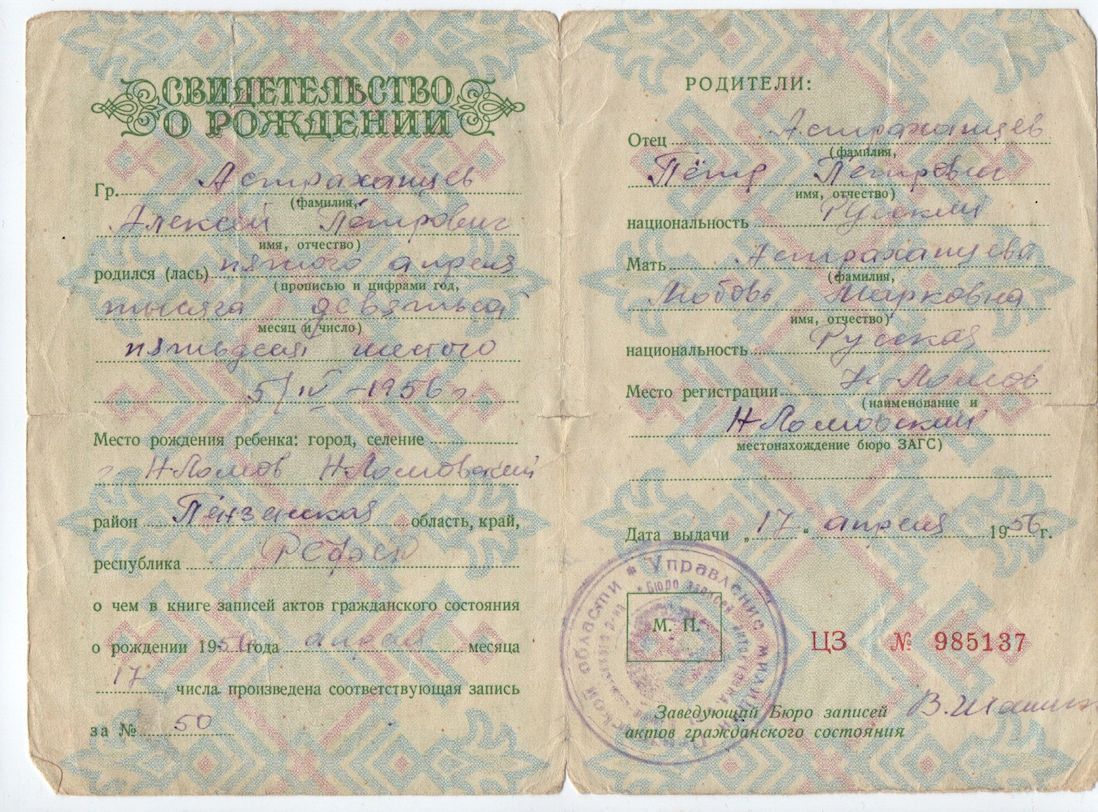 СВИДЕТЕЛЬСТВО
О РОЖДЕНИИ
Гр. Астраханцев
(фамилия,
Алексей Петрович
имя, отчество)
родился (лась) пятого апреля
(прописью и цифрами год,
тысяча девятьсот
месяц и число)
пятьдесят шестого
5/IV -1956 г
Место рождения ребенка: город, селение
г Н Ломов Н Ломовский
район Пензенская область, край,
республика РСФСР
о чем в книге записей актов гражданского состояния
о рождении 1956 года апреля месяца
17 числа произведена соответствующая запись
за № 50
РОДИТЕЛИ:
Отец Астраханцев
(фамилия,
Пётр Петрович
имя, отчество)
национальность Русский
Мать Астраханцева
(фамилия,
Любовь Марковна
имя, отчество)
национальность Русская
Место регистрации Н-Ломов
(наименование и
Н Ломовский
местонахождение бюро ЗАГС)
Дата выдачи „17" апреля 1956 г.
Управление милиции области
Бюро записей
М. П.
ЦЗ № 985137
Заведующий Бюро записей
актов гражданского состояния